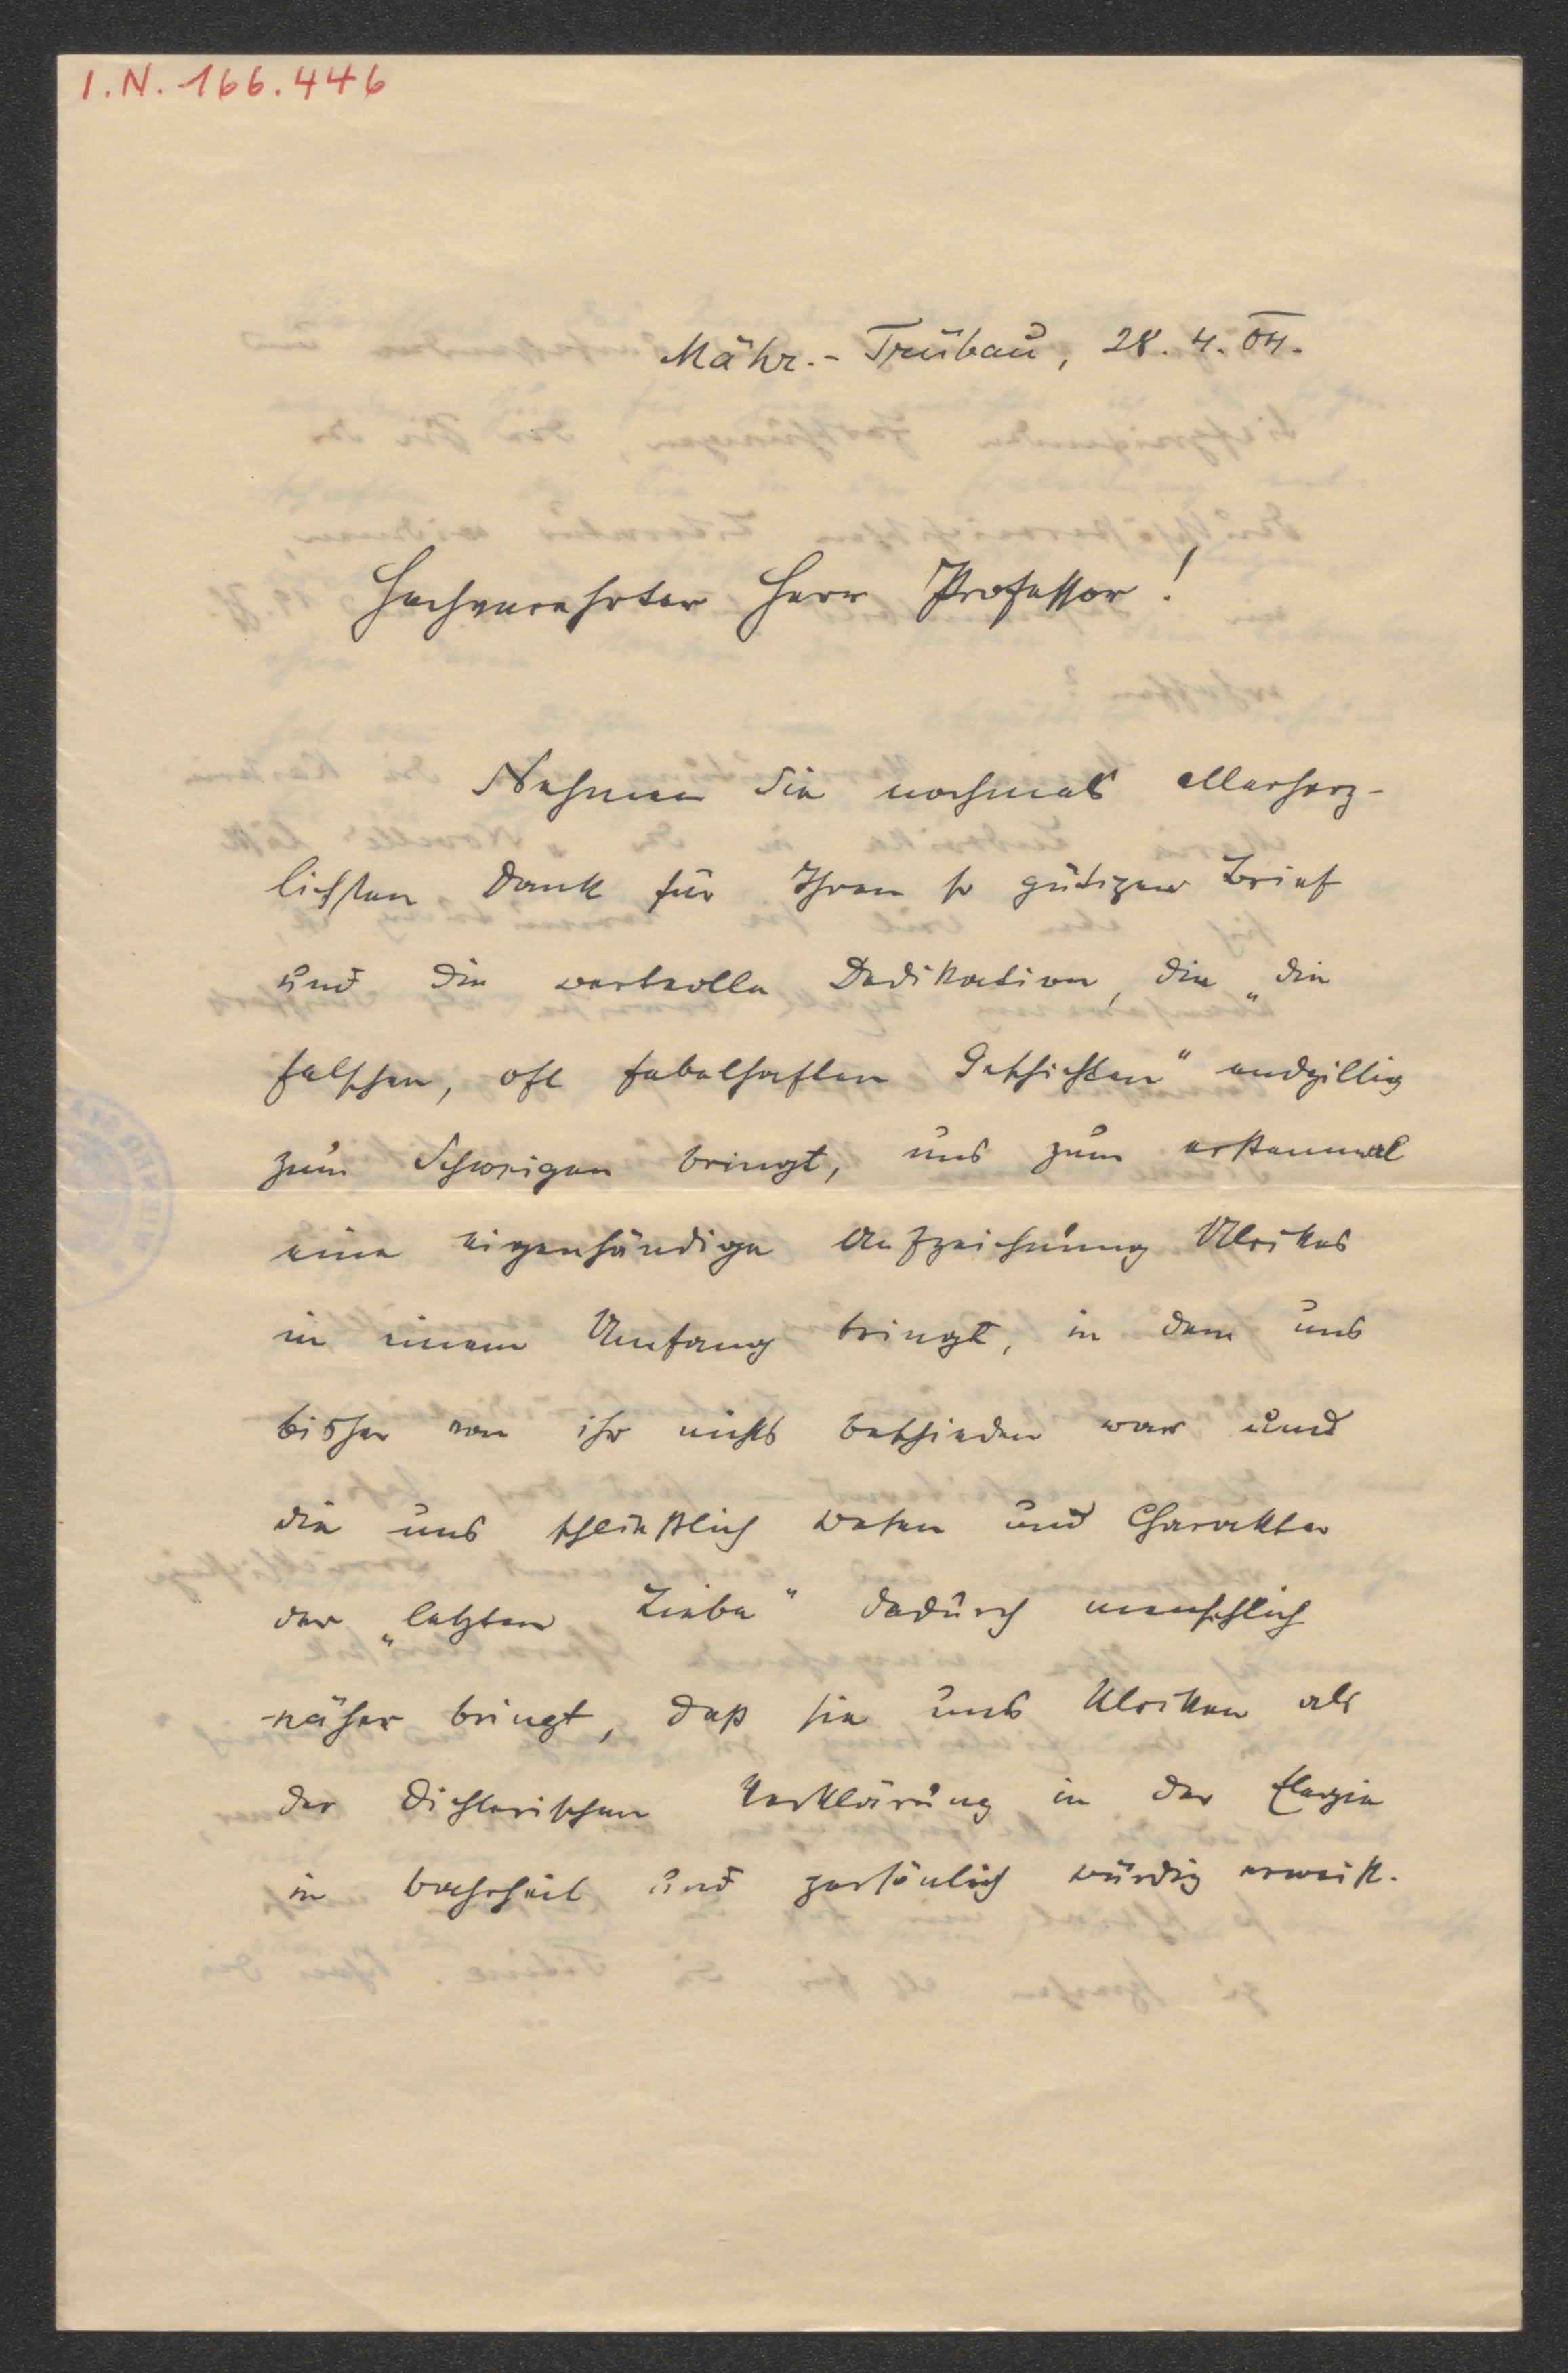 I.N. 166.446
Mähr.-Trübau, 28. 4. 04.
Hochverehrter Herr Professor!
Nehmen Sie nochmals allerherz-
lichsten Dank für Ihren so gütigen Brief
und die wertvolle Dedikation, die „die
falschen, oft fabelhaften Geschichten“ endgiltig
zum Schweigen bringt, uns zum erstenmal
eine eigenhändige Aufzeichnung Ulrikes
in einem Umfang bringt, in dem uns
bisher von ihr nichts beschieden war und
die uns schließlich Wesen und Charakter
der „letzten Liebe“ dadurch menschlich
näher bringt, daß sie uns Ulriken als
der dichterischen Verklärung in der Elegie
in Wahrheit und persönlich würdig erweist.